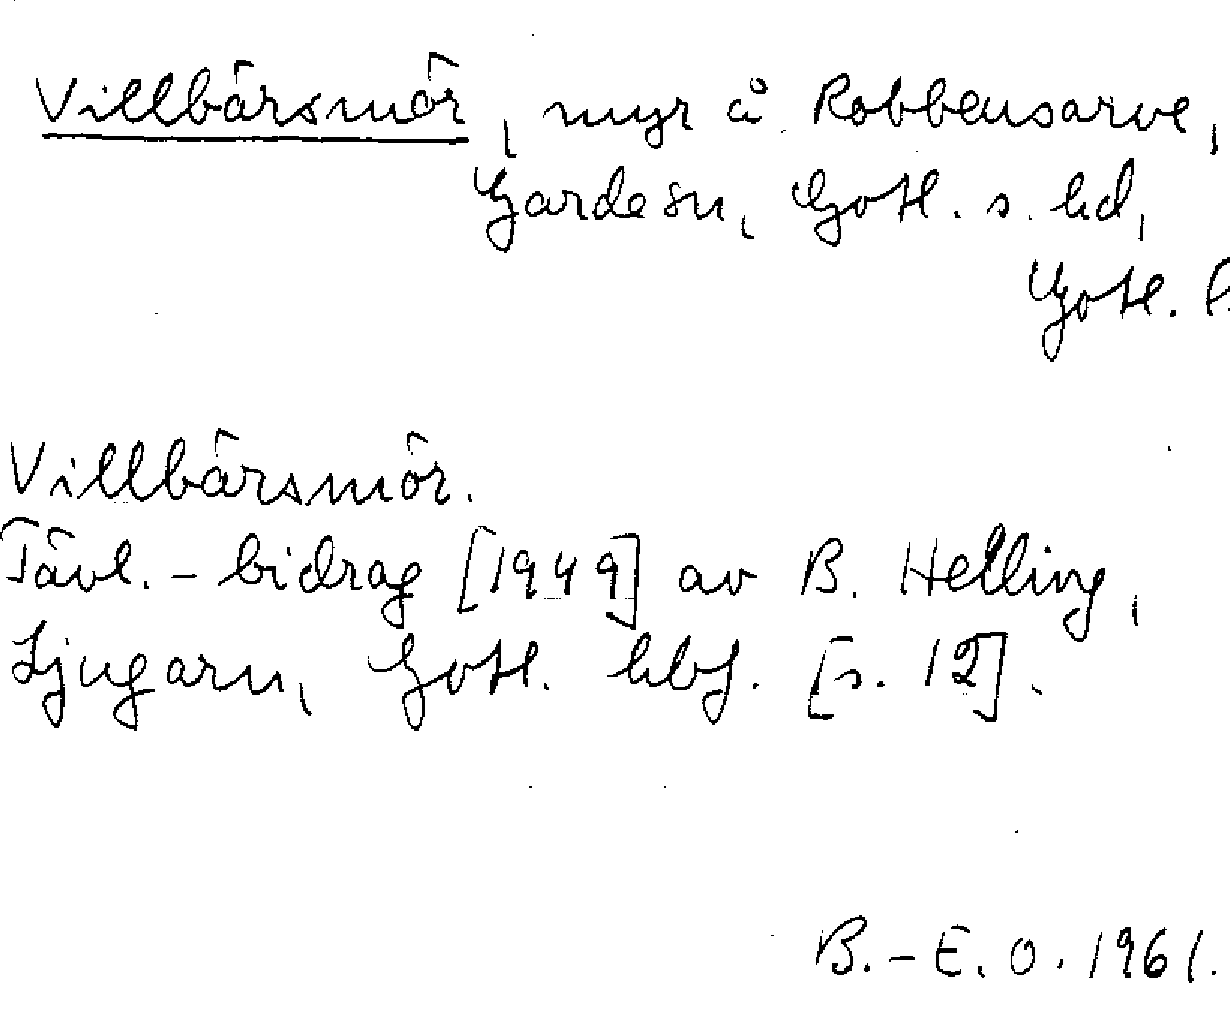 Villbärsmör, myr å Robbensarve,
Garde sn, Gotl. s. hd,
Gotl.
Villbärsmör.
Tävl.-bidrag [1949] av B. Helling,
Ljugarn, Gotl. hbf. [s. 12].
B.-E. O. 1961.